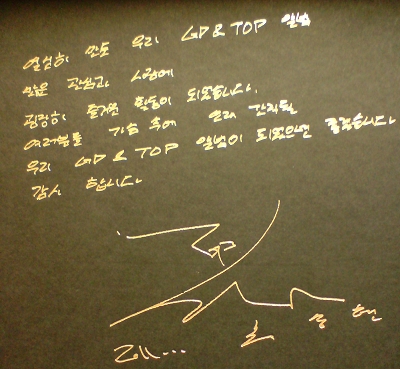 열심히 만든 우리 GD & TOP 앨범
많은 관심과 사랑에
굉장히 즐거운 활동이 되었습니다.
여러분들 가슴 속에 오래 간직될
우리 GD & TOP 앨범이 되었으면 좋겠습니다
감사 합니다
TOP
최승현